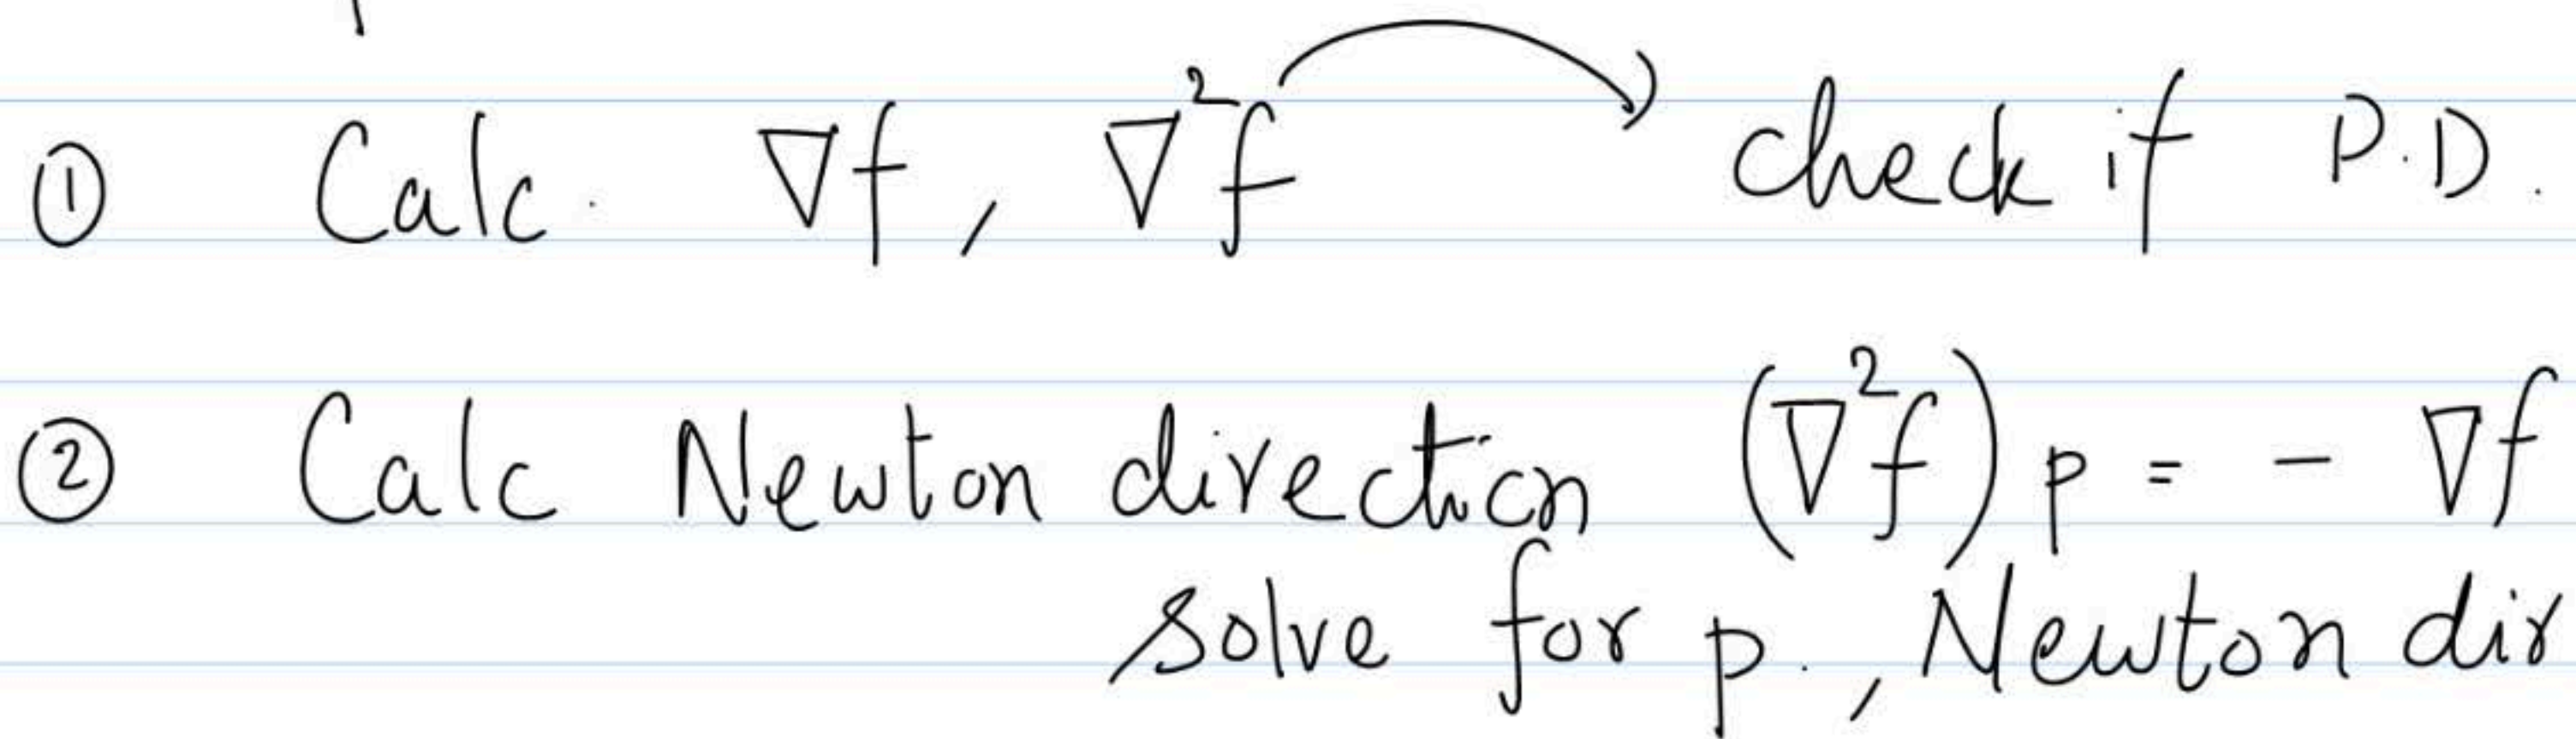 ① Calc. ∇f, ∇²f → check if P.D.
② Calc Newton direction (∇²f) p = - ∇f
solve for p., Newton dir